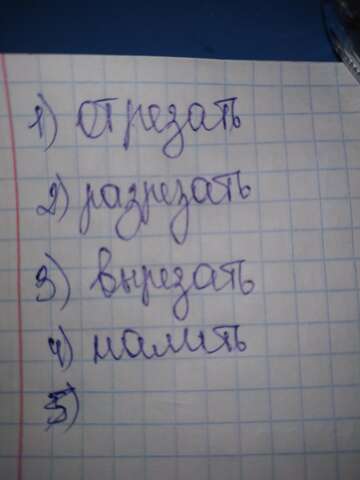 1) отрезать
2) разрезать
3) вырезать
4) налить
5)